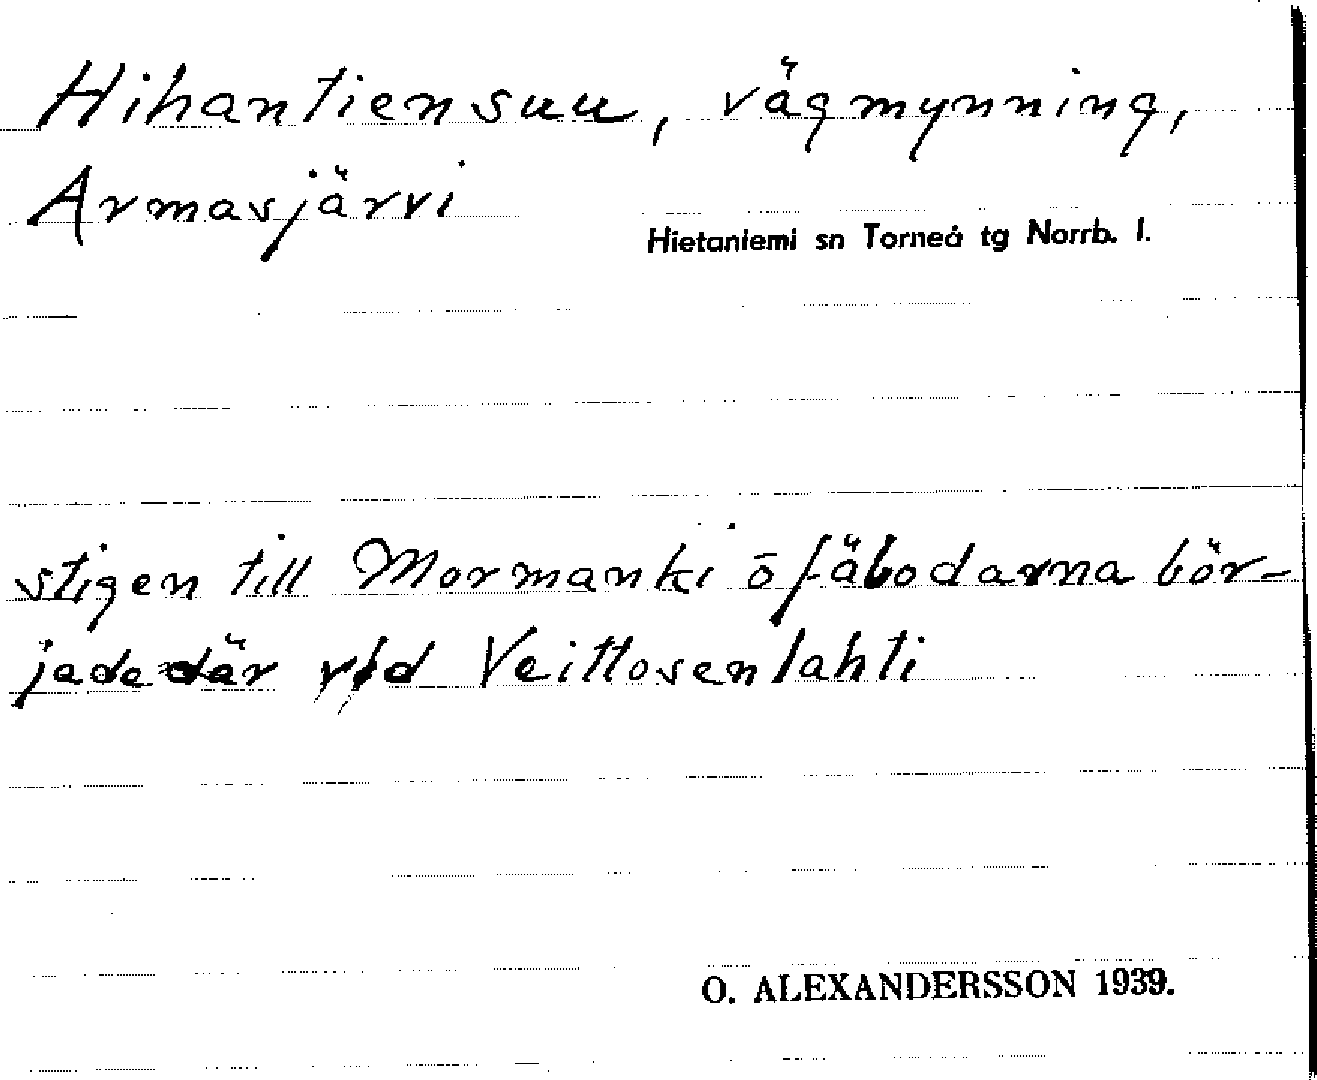 Hihantiensuu, vägmynning,
Armasjärvi
Hietaniemi sn Torneå tg Norrb. l.
stigen till Mormanki ō fäbodarna bör-
jade där vid Veittosenlahti
O. ALEXANDERSSON 1939.